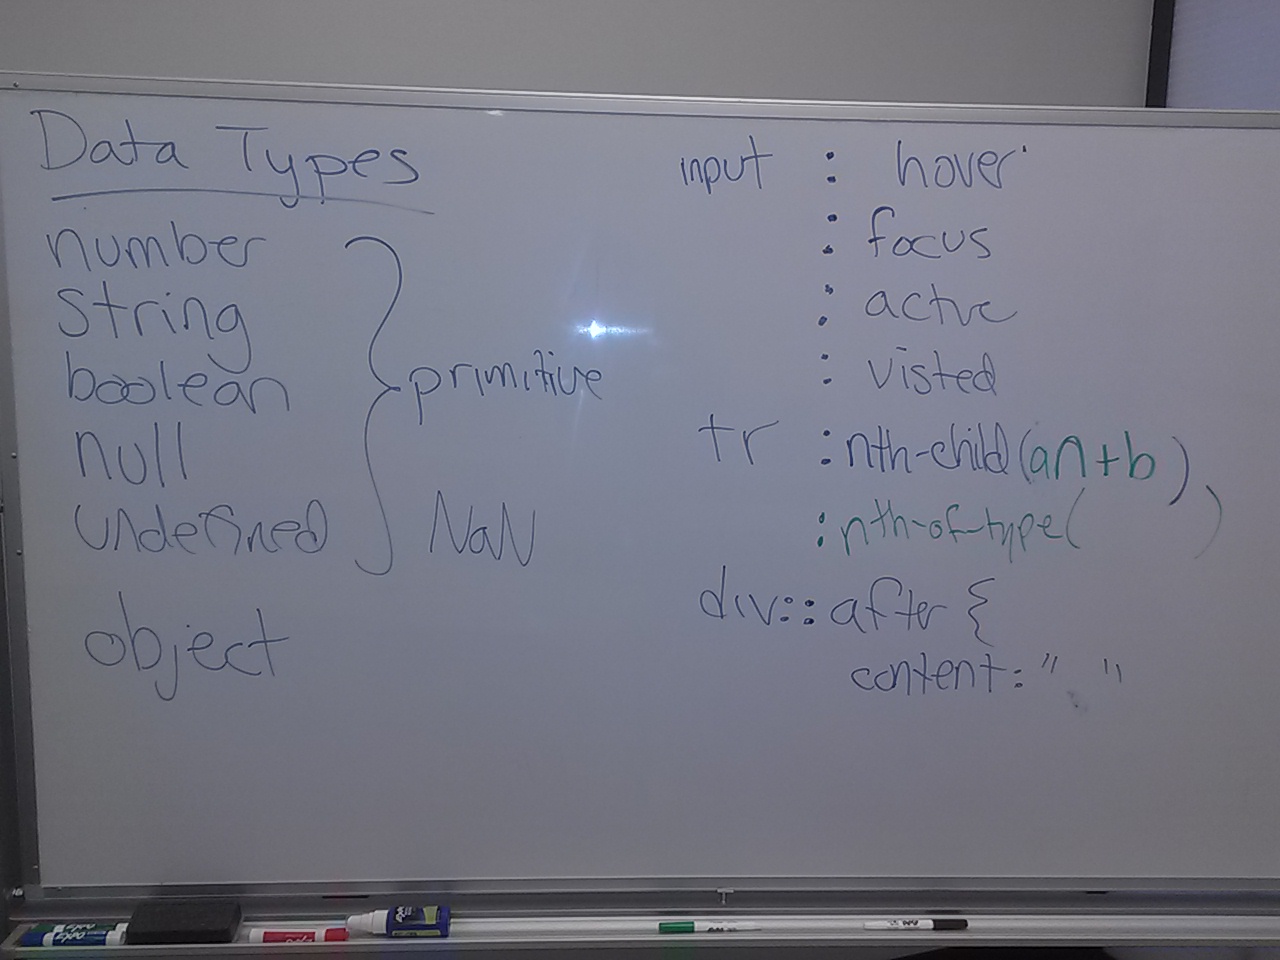 Data Types
number
string
boolean
primitive
null
undefined
NaN
object
input : hover
: focus
: active
: visted
tr :nth-child(an+b)
:nth-of-type( )
div::after {
content: " "